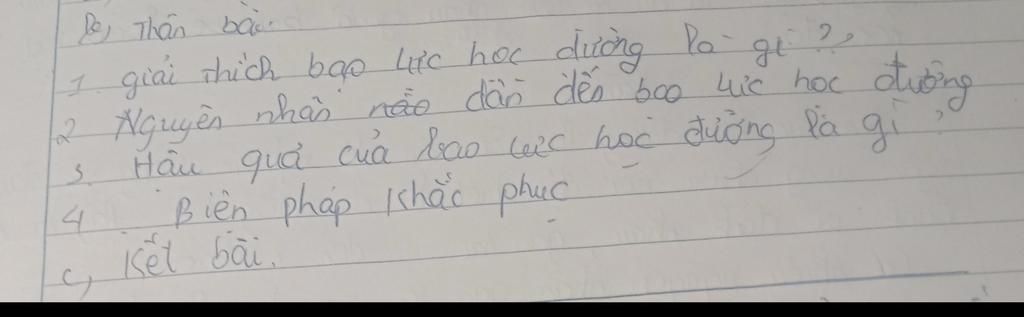 b, Thân bài:
1. giải thích bạo lực học đường là gì ?
2 Nguyên nhân nào dẫn đến bạo lực học đường
3. Hậu quả của bạo lực học đường là gì ?
4 Biện pháp khắc phục
c, Kết bài.